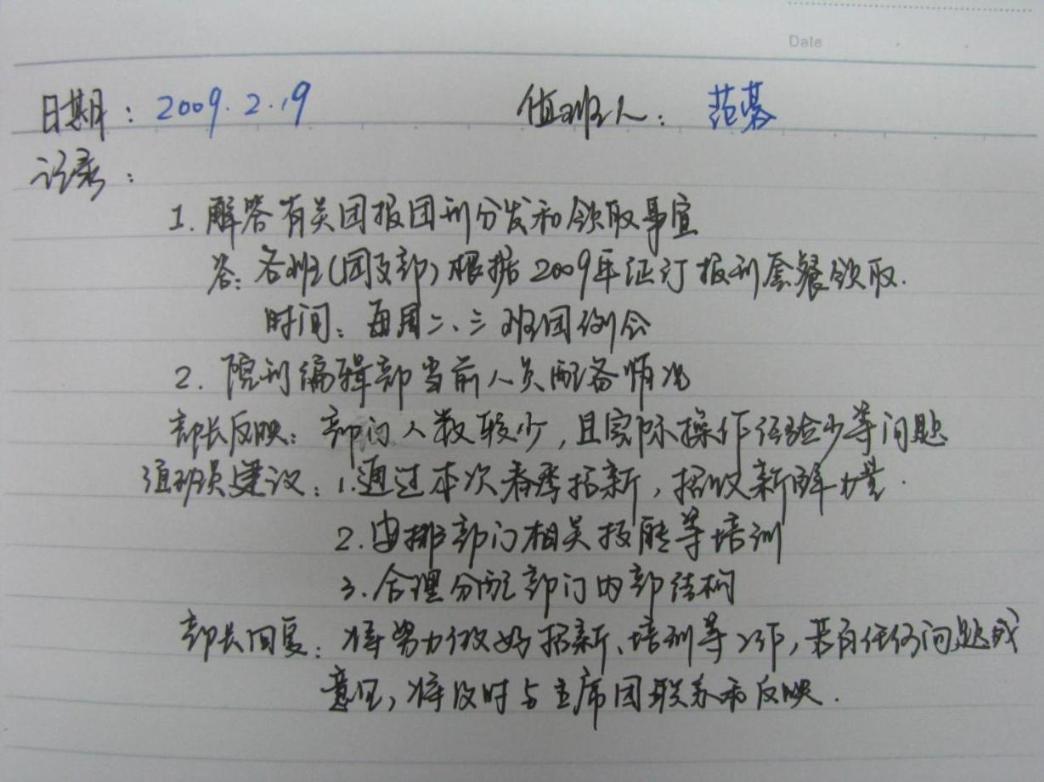 Date
日期：2009.2.19 值班人：范慕
记录：
1.解答有关团报团刊分发和领取事宜
答：各班(团支部)根据2009年征订报刊套餐领取.
时间：每周二、三班团例会
2.院刊编辑部当前人员配备情况
部长反映：部门人数较少,且实际操作经验少等问题
值班员建议：1.通过本次春季招新,招收新鲜力量.
2.安排部门相关技能等培训
3.合理分配部门内部结构
部长回复：将努力做好招新、培训等工作,若有任何问题或
意见,将及时与主席团联系和反映.